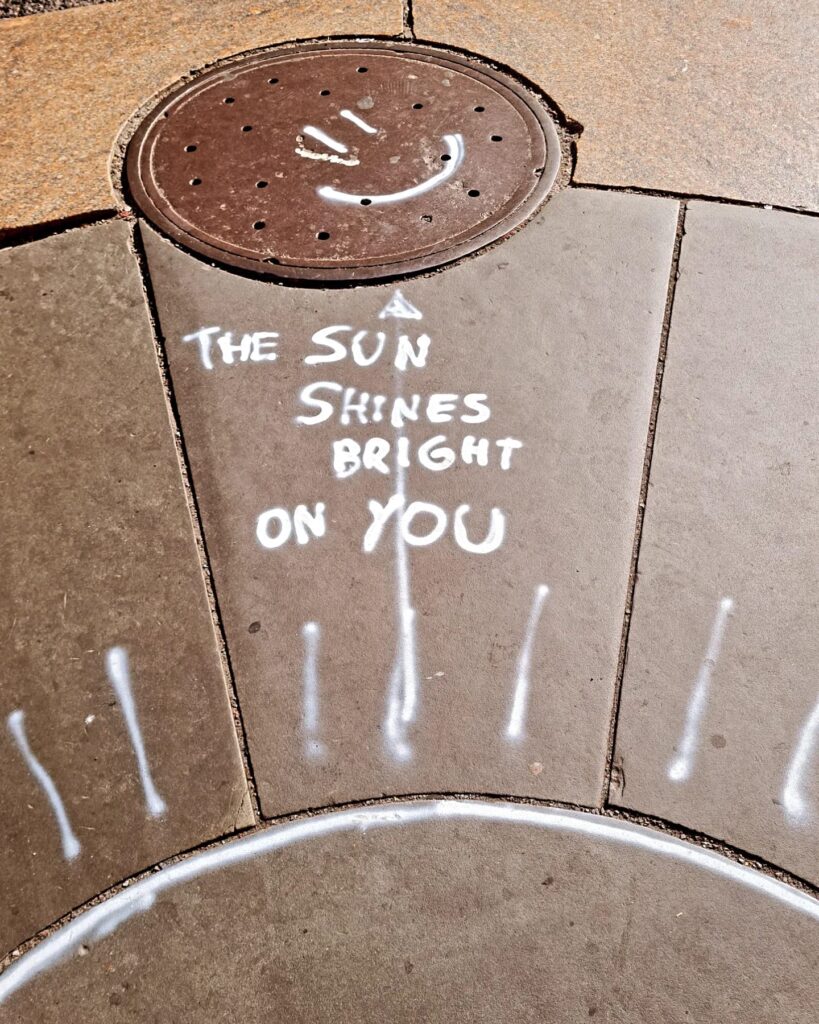 THE SUN
SHINES
BRIGHT
ON YOU